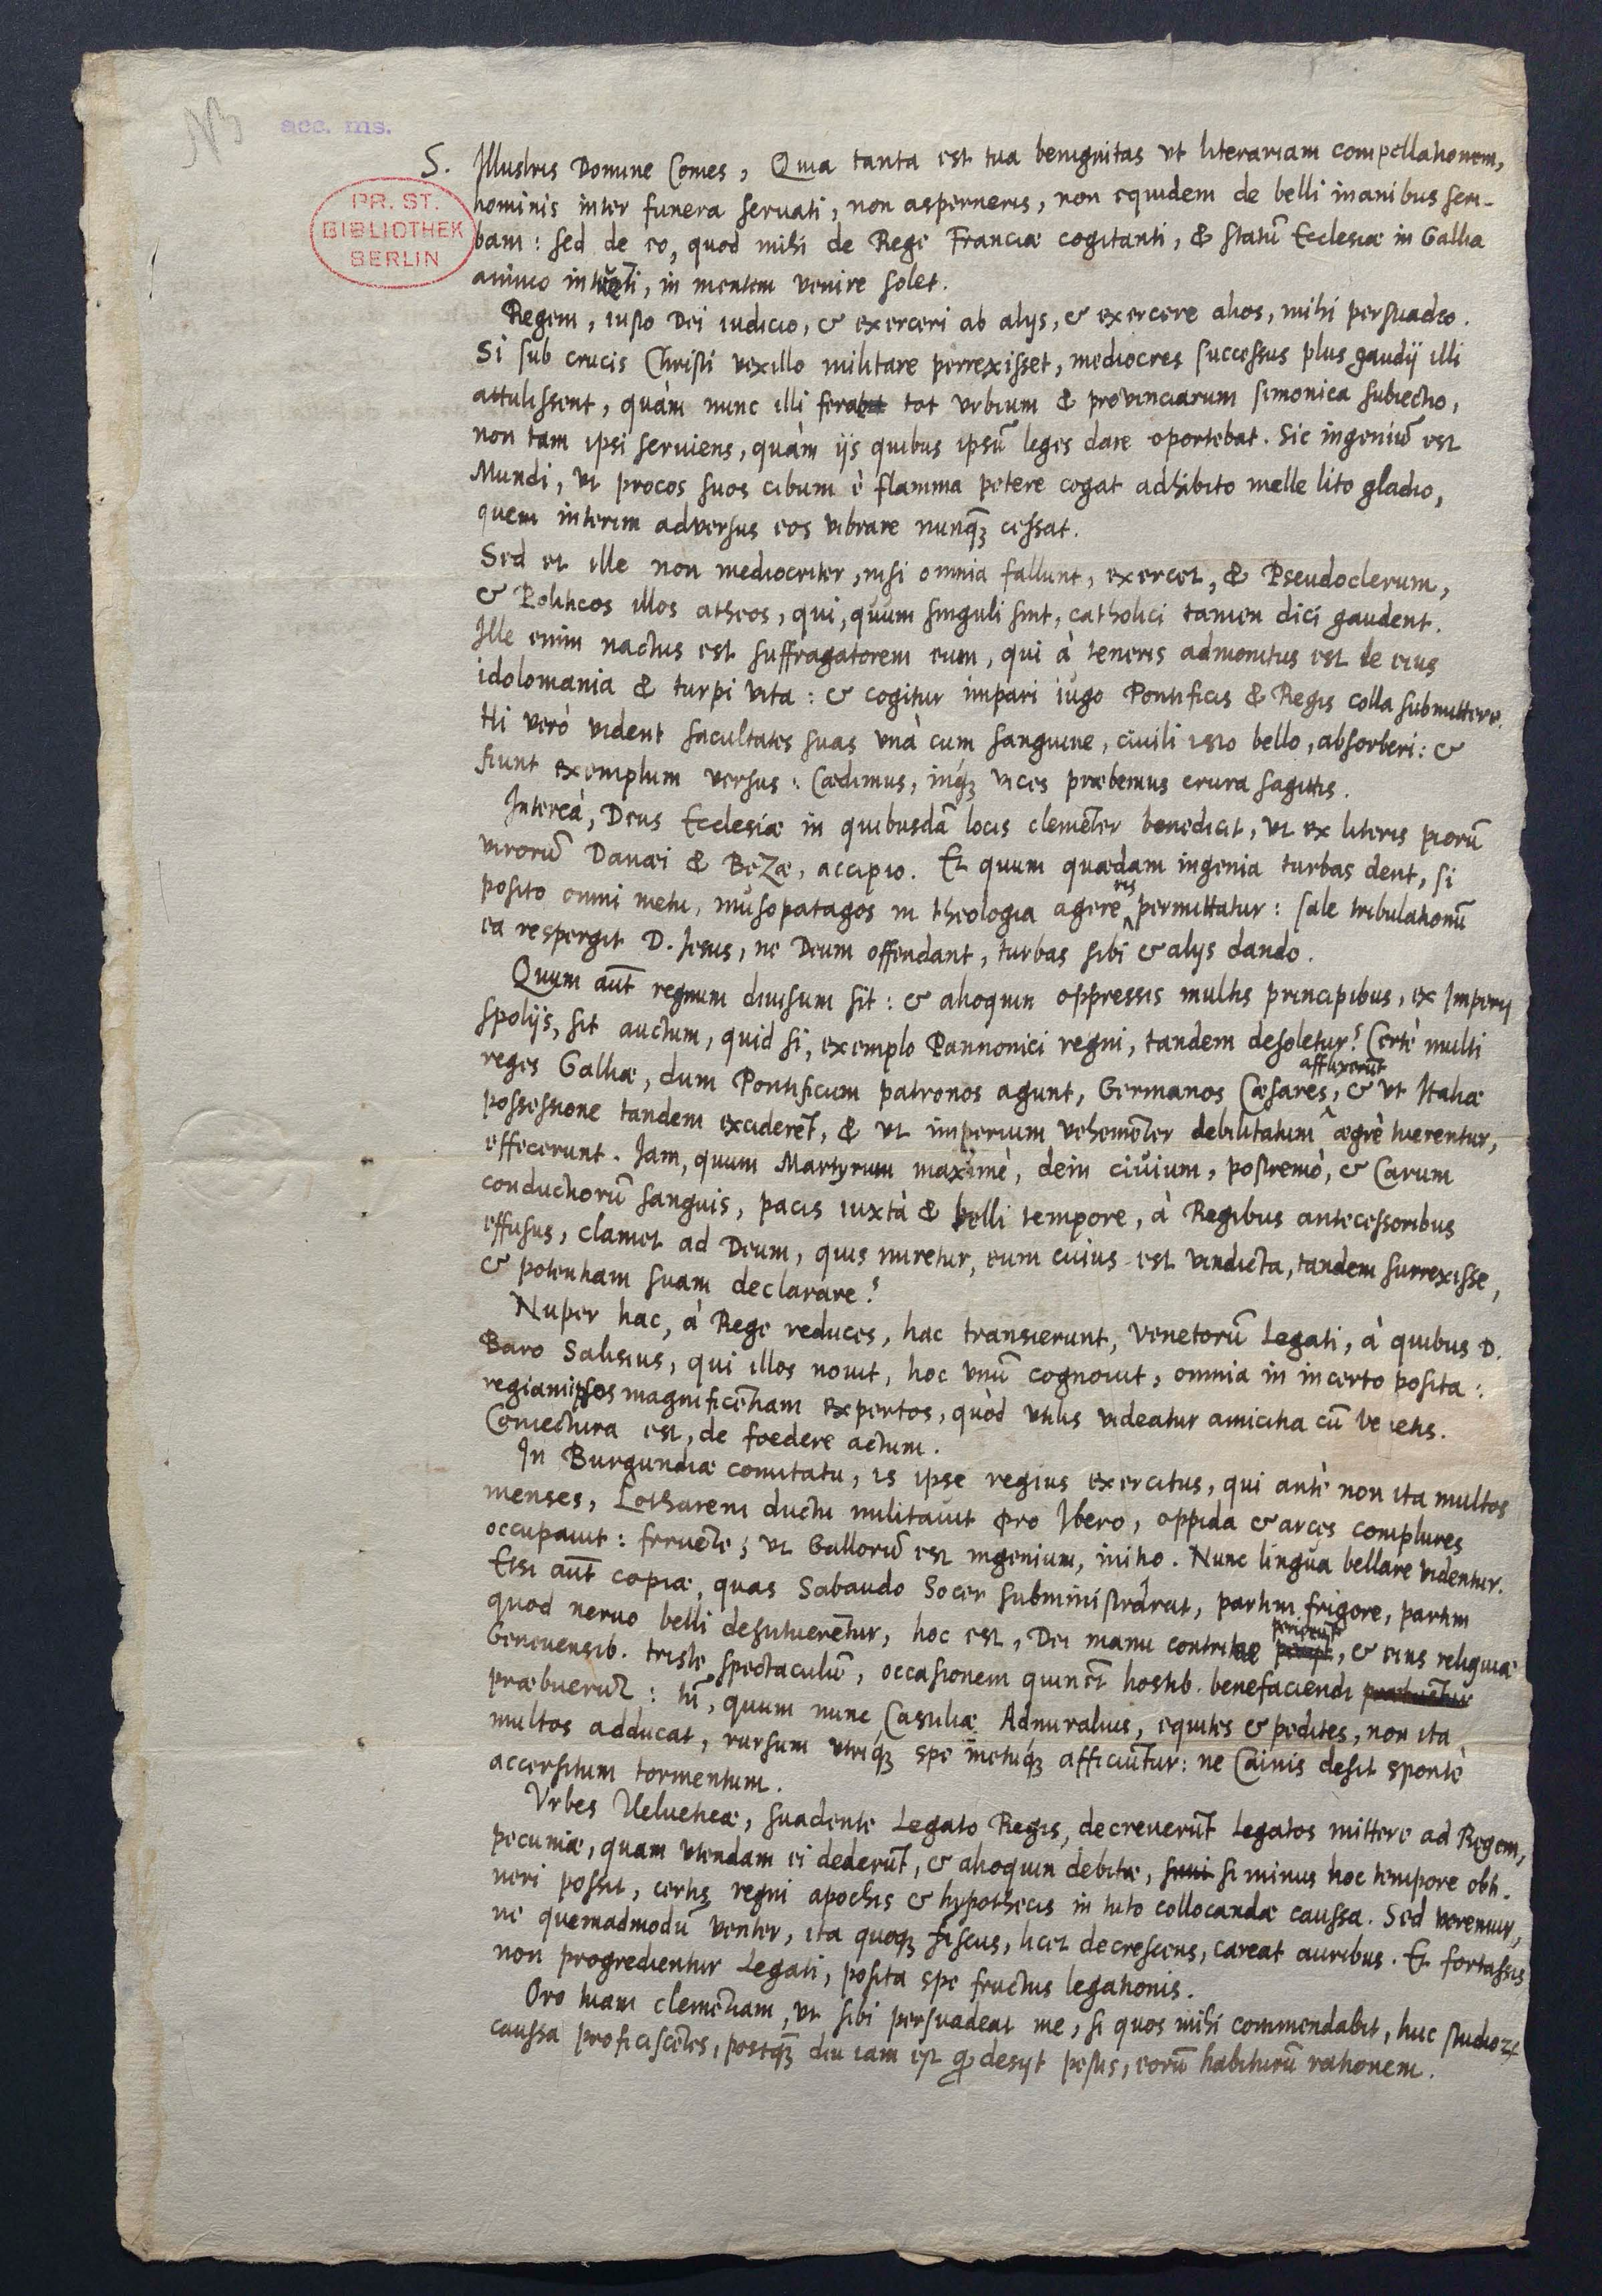 N3
acc. ms.
PR. ST.
BIBLIOTHEK
BERLIN
S. Illustris Domine Comes, Quia tanta est tua benignitas vt literariam compellationem,
hominis inter funera seruati, non asperneris, non equidem de belli inanibus scri-
bam: sed de eo, quod mihi de Rege Franciæ cogitanti, & statū Ecclesiæ in Gallia
animo intuēti, in mentem venire solet.
Regem, iusto Dei iudicio, & exerceri ab alijs, & exercere alios, mihi persuadeo.
Si sub crucis Christi vexillo militare perrexisset, mediocres successus plus gaudij illi
attulissent, quàm nunc illi ferat tot vrbium & provinciarum simonica subiectio,
non tam ipsi seruiens, quàm ijs quibus ipsū leges dare oportebat. Sic ingeniū est
Mundi, vt procos suos cibum è flamma petere cogat adhibito melle lito gladio,
quem interim adversus eos vibrare nunqꝫ cessat.
Sed et ille non mediocriter, nisi omnia fallunt, exercet, & Pseudoclerum,
& Politicos illos atheos, qui, quum singuli sint, catholici tamen dici gaudent.
Ille enim nactus est suffragatorem eum, qui à teneris admonitus est de eius
idolomania & turpi vita: & cogitur impari iugo Pontificis & Regis colla submittere.
Hi verò vident facultates suas vnà cum sanguine, ciuili isto bello, absorberi: &
fiunt exemplum versus: Cædimus, inqꝫ vices præbemus crura sagittis.
Intereà, Deus Ecclesiæ in quibusdā locis clemēter benedicit, vt ex literis piorū
virorū Danæi & Bezæ, accipio. Et quum quædam ingenia turbas dent, si
posito omni metu, musopatagos in theologia agere ijs permittatur: sale tribulationū
ea respergit D. Jesus, ne Deum offendant, turbas sibi & alijs dando.
Quum aūt regnum diuisum sit: & alioquin oppressis multis principibus, ex Imperij
spolijs, sit auctum, quid si, exemplo Pannonici regni, tandem desoletur? Certè multi
reges Galliæ, dum Pontificum patronos agunt, Germanos Cæsares, afflixerūt & vt Italiæ
possessione tandem exciderēt, & vt imperium vehemēter debilitatum ægrè tuerentur,
effecerunt. Jam, quum Martyrum maximè, dein ciuium, postremò, & Carum
conductiorū sanguis, pacis iuxtà & belli tempore, à Regibus antecessoribus
effusus, clamet ad Deum, quis miretur, eum cuius est vindicta, tandem surrexisse,
& potentiam suam declarare?
Nuper hac, à Rege reduces, hac transierunt, Venetorū Legati, à quibus D.
Baro Salisius, qui illos nouit, hoc vnū cognouit, omnia in incerto posita:
regiam ipsos magnificētiam expertos, quòd vtilis videatur amicitia cū Venetis.
Coniectura est, de foedere actum.
In Burgundiæ comitatu, is ipse regius exercitus, qui antè non ita multos
menses, Lothareni ductu militauit pro Ibero, oppida & arces complures
occupauit: feruēte, vt Gallorū est ingenium, initio. Nunc linguâ bellare videntur.
Etsi aūt copiæ, quas Sabaudo Socer subministrârat, partim frigore, partim
quod neruo belli destituerētur, hoc est, Dei manu contritæ perierūt, & eius reliquiæ
Geneuensib. triste spectaculū, occasionem quin et hostib. benefaciendi
præbuerūt: tn̄, quum nunc Castiliæ Admiralius, equites & pedites, non ita
multos adducat, rursum vtriqꝫ spe metuqꝫ afficiūtur: ne Cainis desit spontè
accersitum tormentum.
Vrbes Heluetieæ, suadente Legato Regis, decreuerūt Legatos mittere ad Regem,
pecuniæ, quam vtendam ei dederūt, & alioquin debitæ, si minus hoc tempore obti-
neri possit, certis regni apochis & hypothecis in tuto collocandæ caussa. Sed veremur,
ne quemadmodū venter, ita quoqꝫ fiscus, licet decrescens, careat auribus. Et fortassis
non progredientur Legati, posita spe fructus legationis.
Oro tuam clemētiam, vt sibi persuadeat me, si quos mihi commendabit, huc studioꝝ
caussa proficiscētes, postqꝫ diu iam est qd desijt pestis, eorū habiturū rationem.